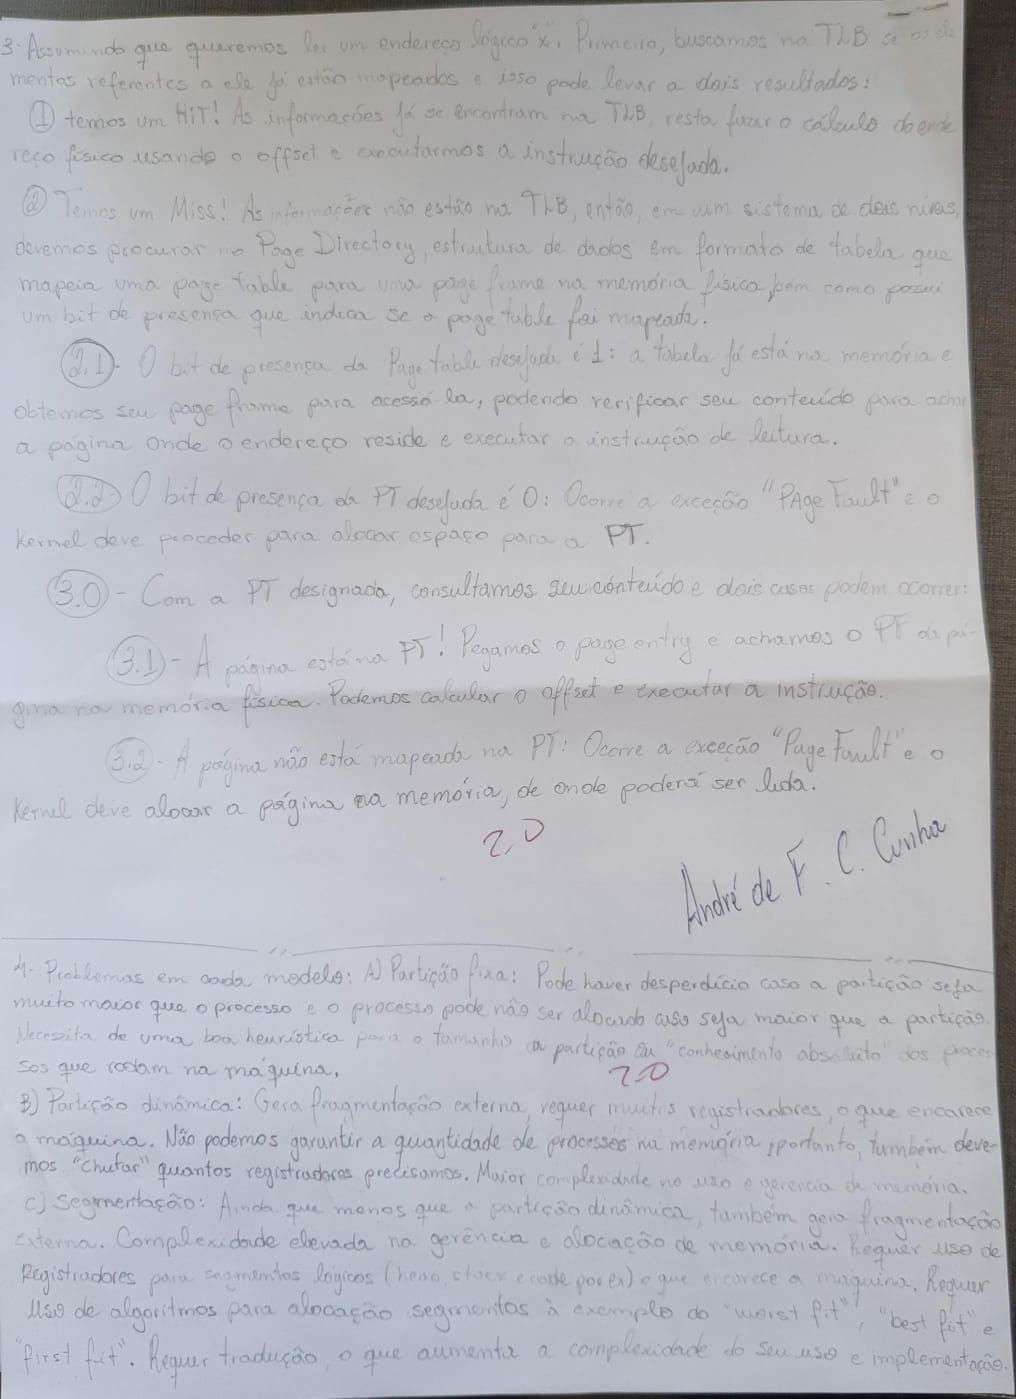 3. Assumindo que queremos ler um endereço lógico "x". Primeiro, buscamos na TLB se os ele
mentos referentes a ele já estão mapeados e isso pode levar a dois resultados:
① temos um HIT! As informações já se encontram na TLB, resta fazer o cálculo do ende
reço físico usando o offset e executarmos a instrução desejada.
② Temos um Miss! As informações não estão na TLB, então, em um sistema de dois níveis,
devemos procurar no Page Directory, estrutura de dados em formato de tabela que
mapeia uma page table para uma page frame na memória física, bem como possui
um bit de presença que indica se a page table foi mapeada.
2.1 - O bit de presença da Page table desejada é 1: a tabela já está na memória e
obtemos seu page frame para acessá-la, podendo verificar seu conteúdo para achar
a página onde o endereço reside e executar a instrução de leitura.
2.2 O bit de presença da PT desejada é 0: Ocorre a exceção "PAge Fault" e o
Kernel deve proceder para alocar espaço para a PT.
3.0 - Com a PT designada, consultamos seu conteúdo e dois casos podem ocorrer:
3.1 - A página está na PT! Pegamos o page entry e achamos o PF da pá-
gina na memória física. Podemos calcular o offset e executar a instrução.
3.2 - A página não está mapeada na PT: Ocorre a exceção "Page Fault" e o
Kernel deve alocar a página na memória, de onde poderá ser lida.
2,0
André de F. C. Cunha
4. Problemas em cada modelo: A) Partição fixa: Pode haver desperdício caso a partição seja
muito maior que o processo e o processo pode não ser alocado caso seja maior que a partição.
Necessita de uma boa heurística para o tamanho da partição ou "conhecimento absoluto" dos proces
sos que rodam na máquina.
2,0
B) Partição dinâmica: Gera fragmentação externa, requer muitos registradores, o que encarece
a máquina. Não podemos garantir a quantidade de processos na memória, portanto, também deve-
mos "chutar" quantos registradores precisamos. Maior complexidade no uso e gerencia de memória.
C) Segmentação: Ainda que menos que a partição dinâmica, também gera fragmentação
externa. Complexidade elevada na gerência e alocação de memória. Requer uso de
Registradores para segmentos lógicos (heap, stack e code por ex) o que encarece a maquina. Requer
uso de algoritmos para alocação segmentos à exemplo do "worst fit", "best fit" e
"first fit". Requer tradução, o que aumenta a complexidade do seu uso e implementação.